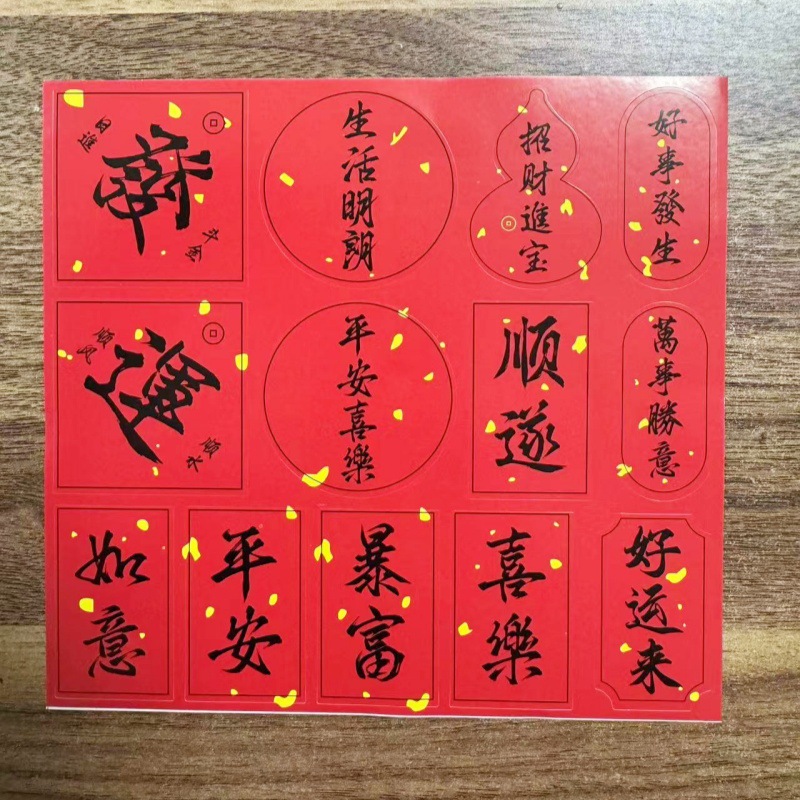 日進
生活明朗
招财進宝
好事發生
順風
運
順水
平安喜樂
順遂
萬事勝意
如意
平安
暴富
喜樂
好运来